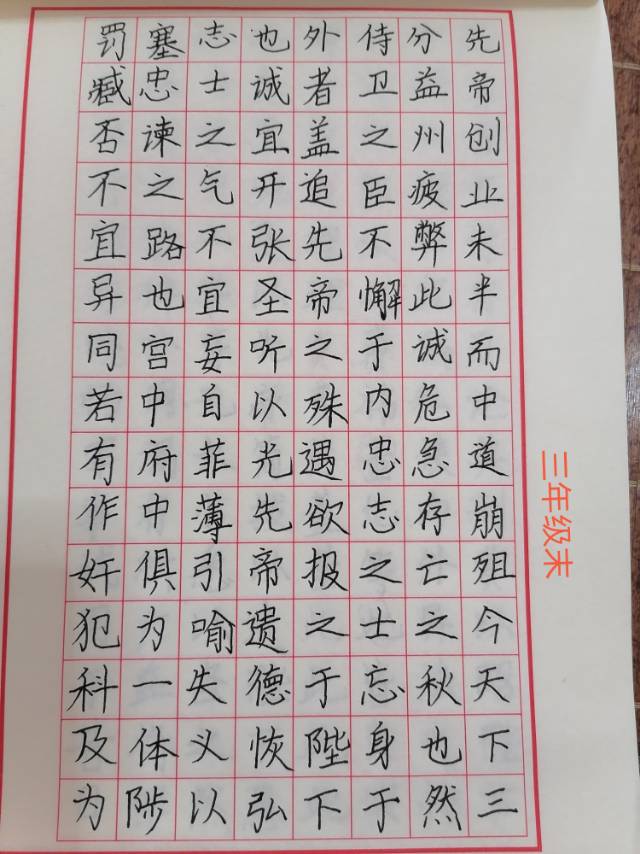 先帝创业未半而中道崩殂今天下三
分益州疲弊此诚危急存亡之秋也然
侍卫之臣不懈于内忠志之士忘身于
外者盖追先帝之殊遇欲报之于陛下
也诚宜开张圣听以光先帝遗德恢弘
志士之气不宜妄自菲薄引喻失义以
塞忠谏之路也宫中府中俱为一体陟
罚臧否不宜异同若有作奸犯科及为
三年级末